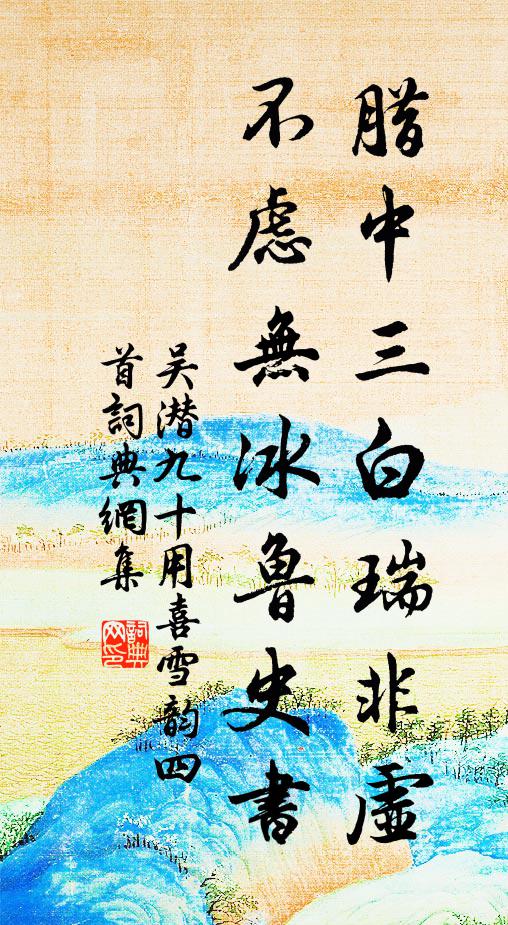 腊中三白瑞非虚
不虑無冰鲁史書
吴潜九十用喜雪韵四
首詞典網集
詞典網印